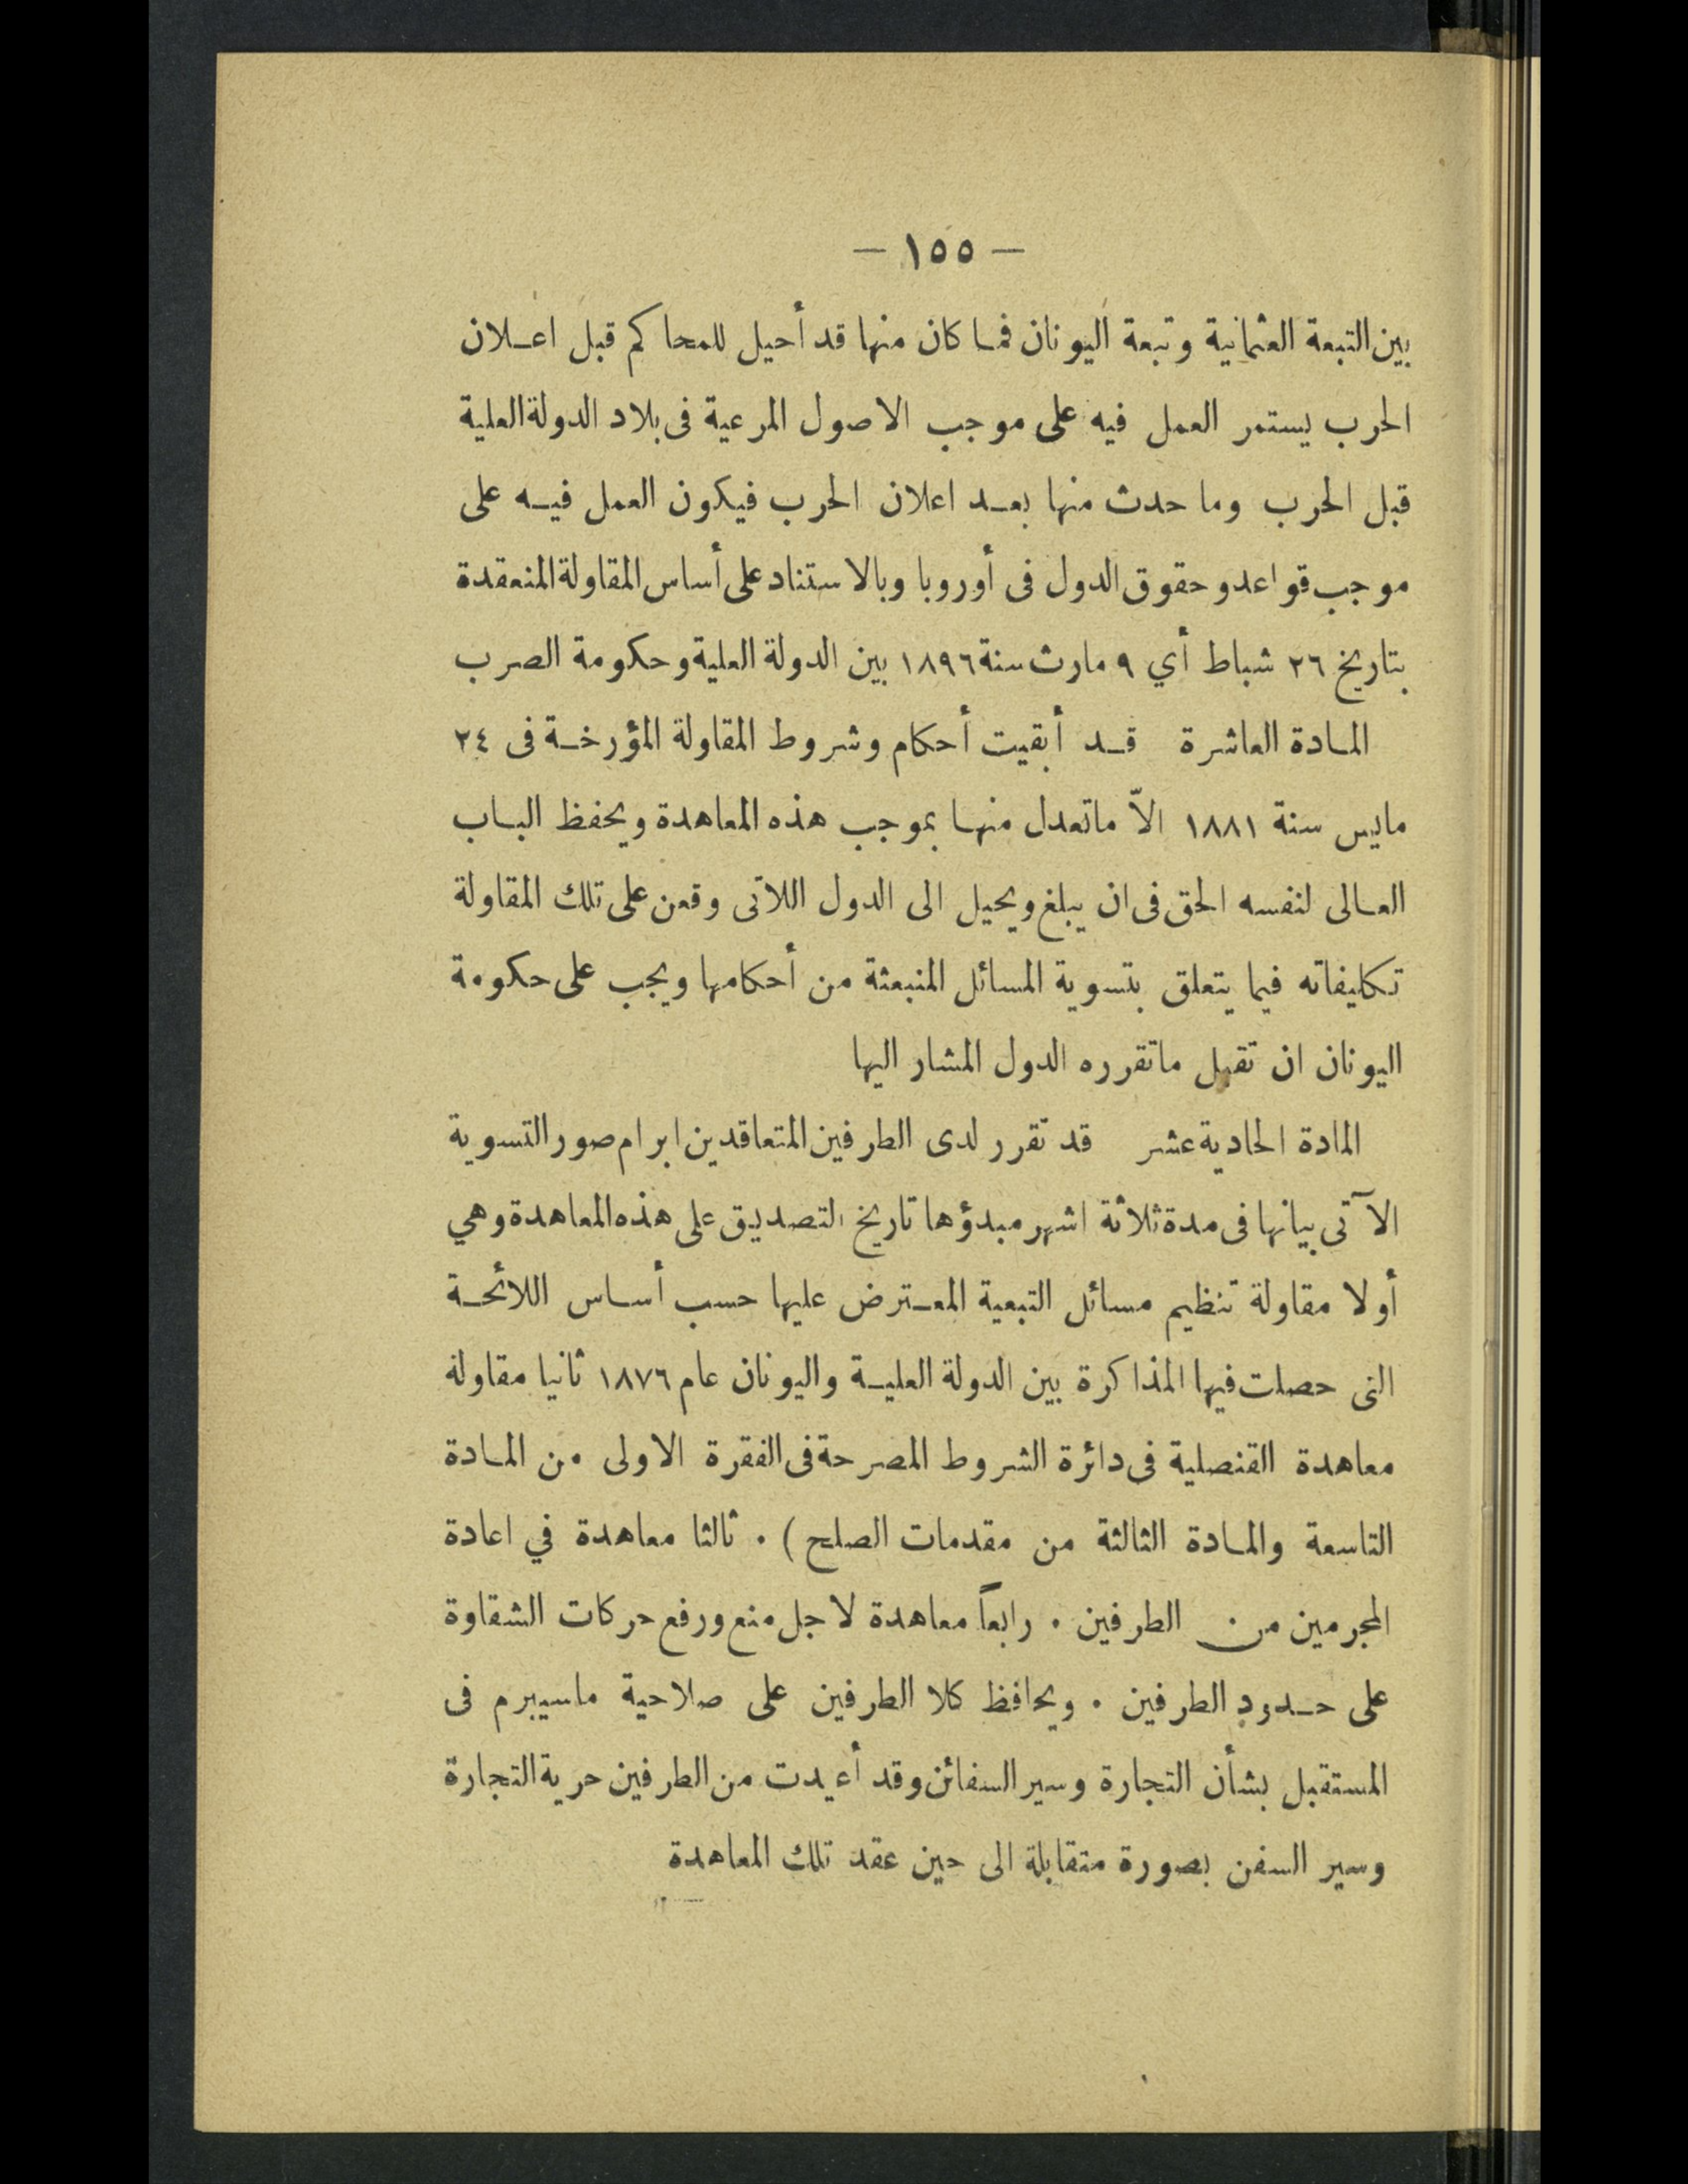 — ١٥٥ —
بين التبعة العثمانية وتبعة اليونان فما كان منها قد أحيل للمحاكم قبل اعلان
الحرب يستمر العمل فيه على موجب الاصول المرعية فى بلاد الدولة العلية
قبل الحرب وما حدث منها بعد اعلان الحرب فيكون العمل فيه على
موجب قواعد وحقوق الدول فى أوروبا وبالاستناد على أساس المقاولة المنعقدة
بتاريخ ٢٦ شباط أي ٩ مارث سنة ١٨٩٦ بين الدولة العلية وحكومة الصرب
المادة العاشرة قد أبقيت أحكام وشروط المقاولة المؤرخة فى ٢٤
مايس سنة ١٨٨١ الاّ ماتعدل منها بموجب هذه المعاهدة ويحفظ الباب
العالى لنفسه الحق فى ان يبلغ ويحيل الى الدول اللاتى وقعن على تلك المقاولة
تكليفاته فيما يتعلق بتسوية المسائل المنبعثة من أحكامها ويجب على حكومة
اليونان ان تقبل ماتقرره الدول المشار اليها
المادة الحادية عشر قد تقرر لدى الطرفين المتعاقدين ابرام صور التسوية
الآتى بيانها فى مدة ثلاثة اشهر مبدؤها تاريخ التصديق على هذه المعاهدة وهي
أولا مقاولة تنظيم مسائل التبعية المعترض عليها حسب أساس اللائحة
التى حصلت فيها المذاكرة بين الدولة العلية واليونان عام ١٨٧٦ ثانيا مقاولة
معاهدة القنصلية فى دائرة الشروط المصرحة فى الفقرة الاولى من المادة
التاسعة والمادة الثالثة من مقدمات الصلح ) . ثالثا معاهدة في اعادة
المجرمين من الطرفين . رابعاً معاهدة لاجل منع ورفع حركات الشقاوة
على حدود الطرفين . ويحافظ كلا الطرفين على صلاحية ماسيبرم فى
المستقبل بشأن التجارة وسير السفائن وقد أعيدت من الطرفين حرية التجارة
وسير السفن بصورة متقابلة الى حين عقد تلك المعاهدة